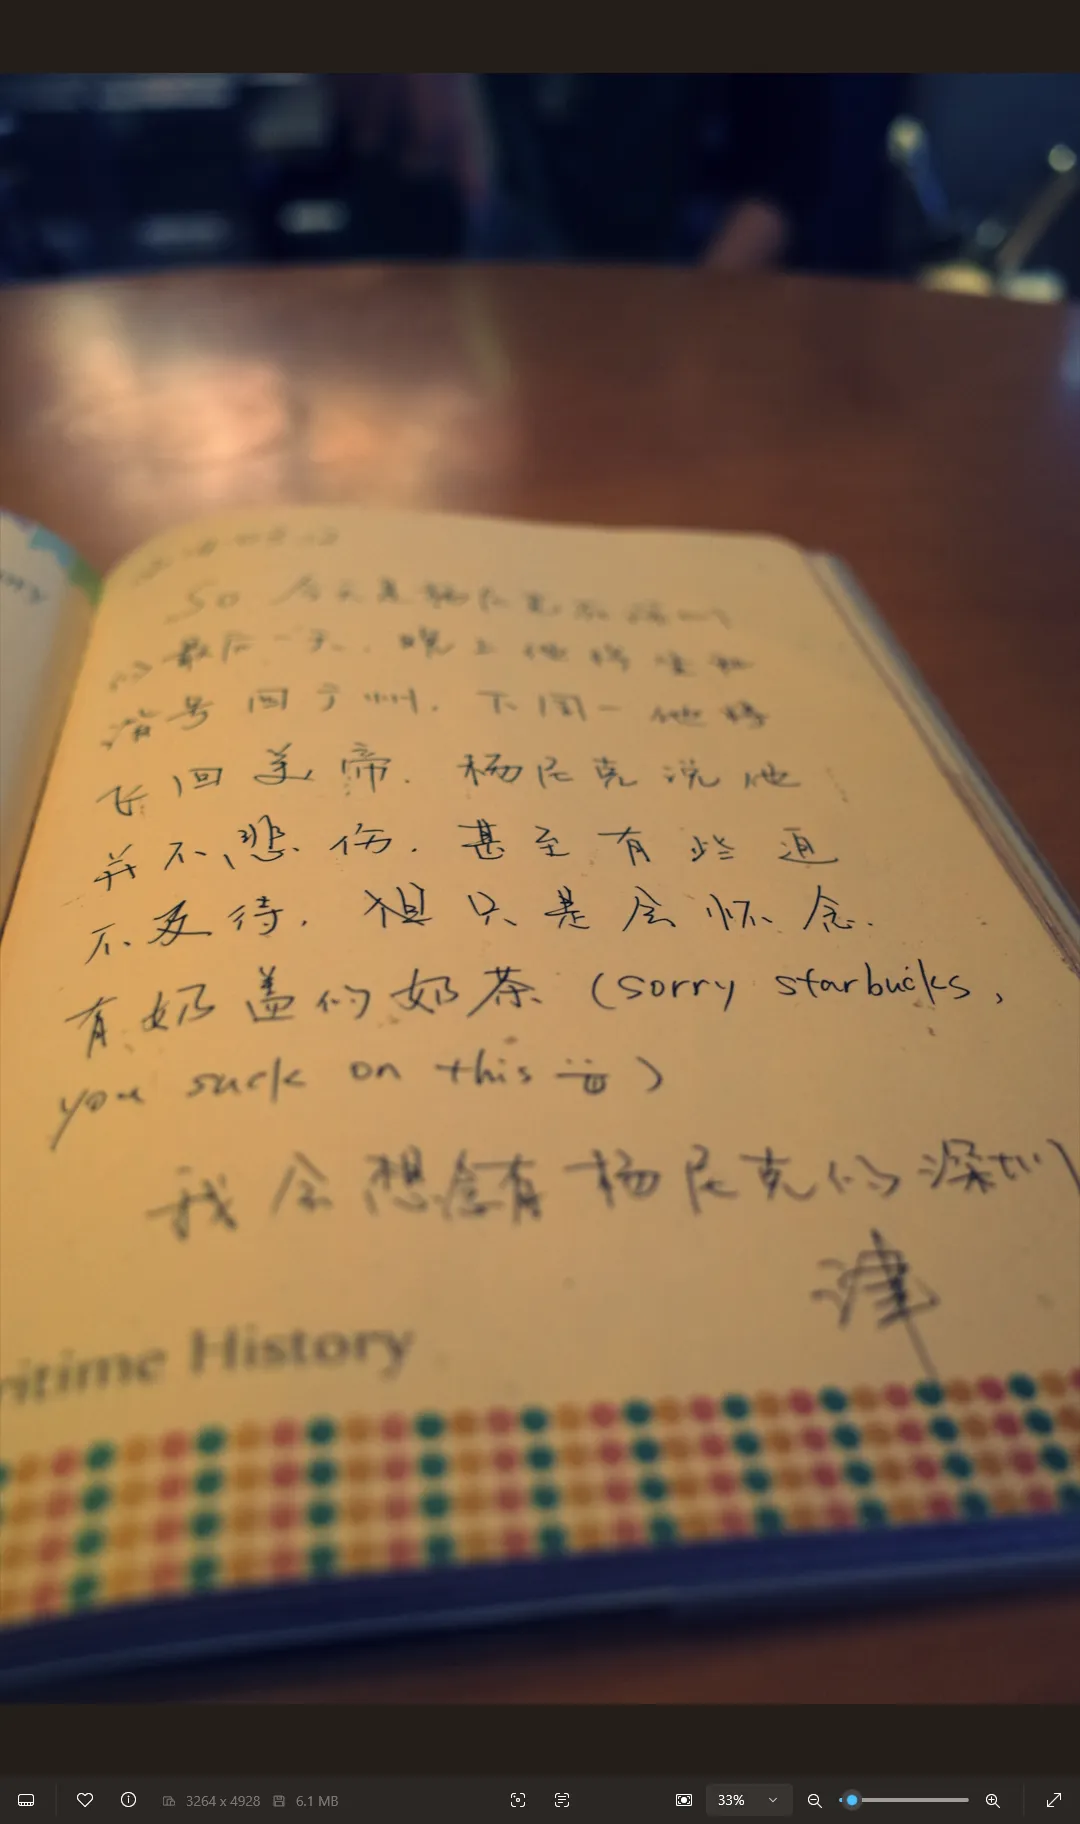 So 今天是杨尼克在深圳
的最后一天. 晚上他将坐和
谐号回广州. 下周一他将
飞回美帝. 杨尼克说他
并不悲伤. 甚至有些迫
不及待. 但只是会怀念.
有奶盖的奶茶 (sorry starbucks,
you suck on this )
我会想念有杨尼克的深圳
津
ritime History
3264 x 4928
6.1 MB
33%